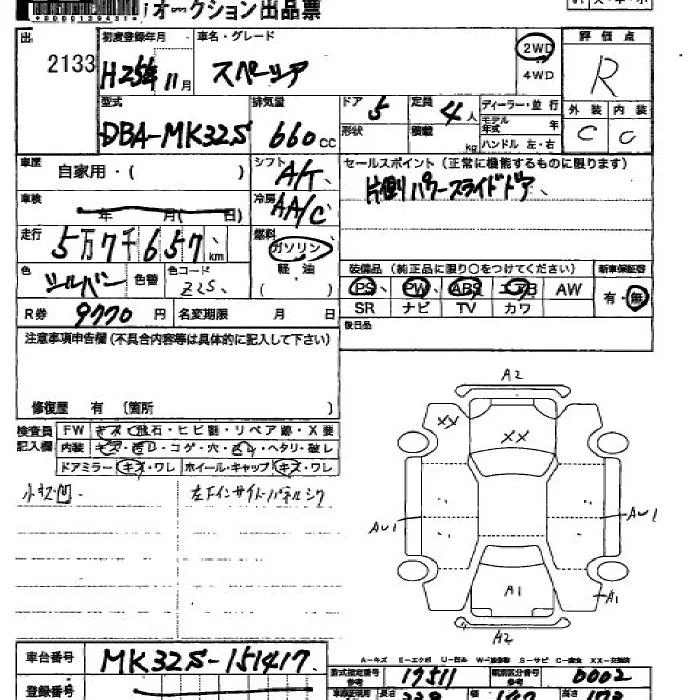 オークション出品票
出 2133
初度登録年月 H25年11月
車名・グレード スペーシア
2WD
4WD
評価点 R
型式 DBA-MK32S
排気量 660cc
ドア 5
定員 4人
形状
積載 kg
ディーラー・並行
モデル年式 年
ハンドル 左・右
外装 C
内装 C
車歴 自家用・( )
シフト A/T
セールスポイント(正常に機能するものに限ります)
片側パワースライドドア、
車検 年 月( 日)
冷房 AA/C
走行 5万7千657km
燃料 ガソリン
軽・油
( )
色 シルバー
色替
色コード Z2S
装備品(純正品に限り○をつけてください)
PS PW ABS エアB AW
SR ナビ TV カワ
新車保証書
有・無
R券 9770円
名変期限 月 日
後日品
注意事項申告欄(不具合内容等は具体的に記入して下さい)
修復歴 有 〔箇所 〕
検査員記入欄
FW キズ・飛石・ヒビ割・リペア跡・X要
内装 キズ・汚れ・コゲ・穴・ヘタリ・破レ
ドアミラー キズ・ワレ ホイール・キャップ キズ・ワレ
左下インサイドパネルシワ
A2
XX
XX
AU1
AU1
A1
A1
A2
A-キズ E-エクボ U-凹み W-補修跡 S-サビ C-腐食 XX-交換済
車台番号 MK32S-151417
登録番号
型式指定番号 参考 17511
類別区分番号 参考 0002